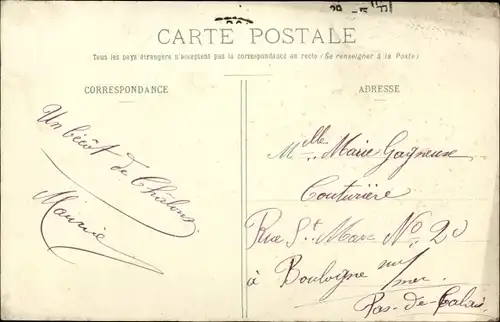 CARTE POSTALE
Tous les pays étrangers n'acceptent pas la correspondance au recto (Se renseigner à la Poste)
CORRESPONDANCE
ADRESSE
Un bécot de Châlons
Maurice
Mlle Marie Gayneuse
Couturière
Rue St Marc No 20
à Boulogne sur
mer
Pas-de-Calais